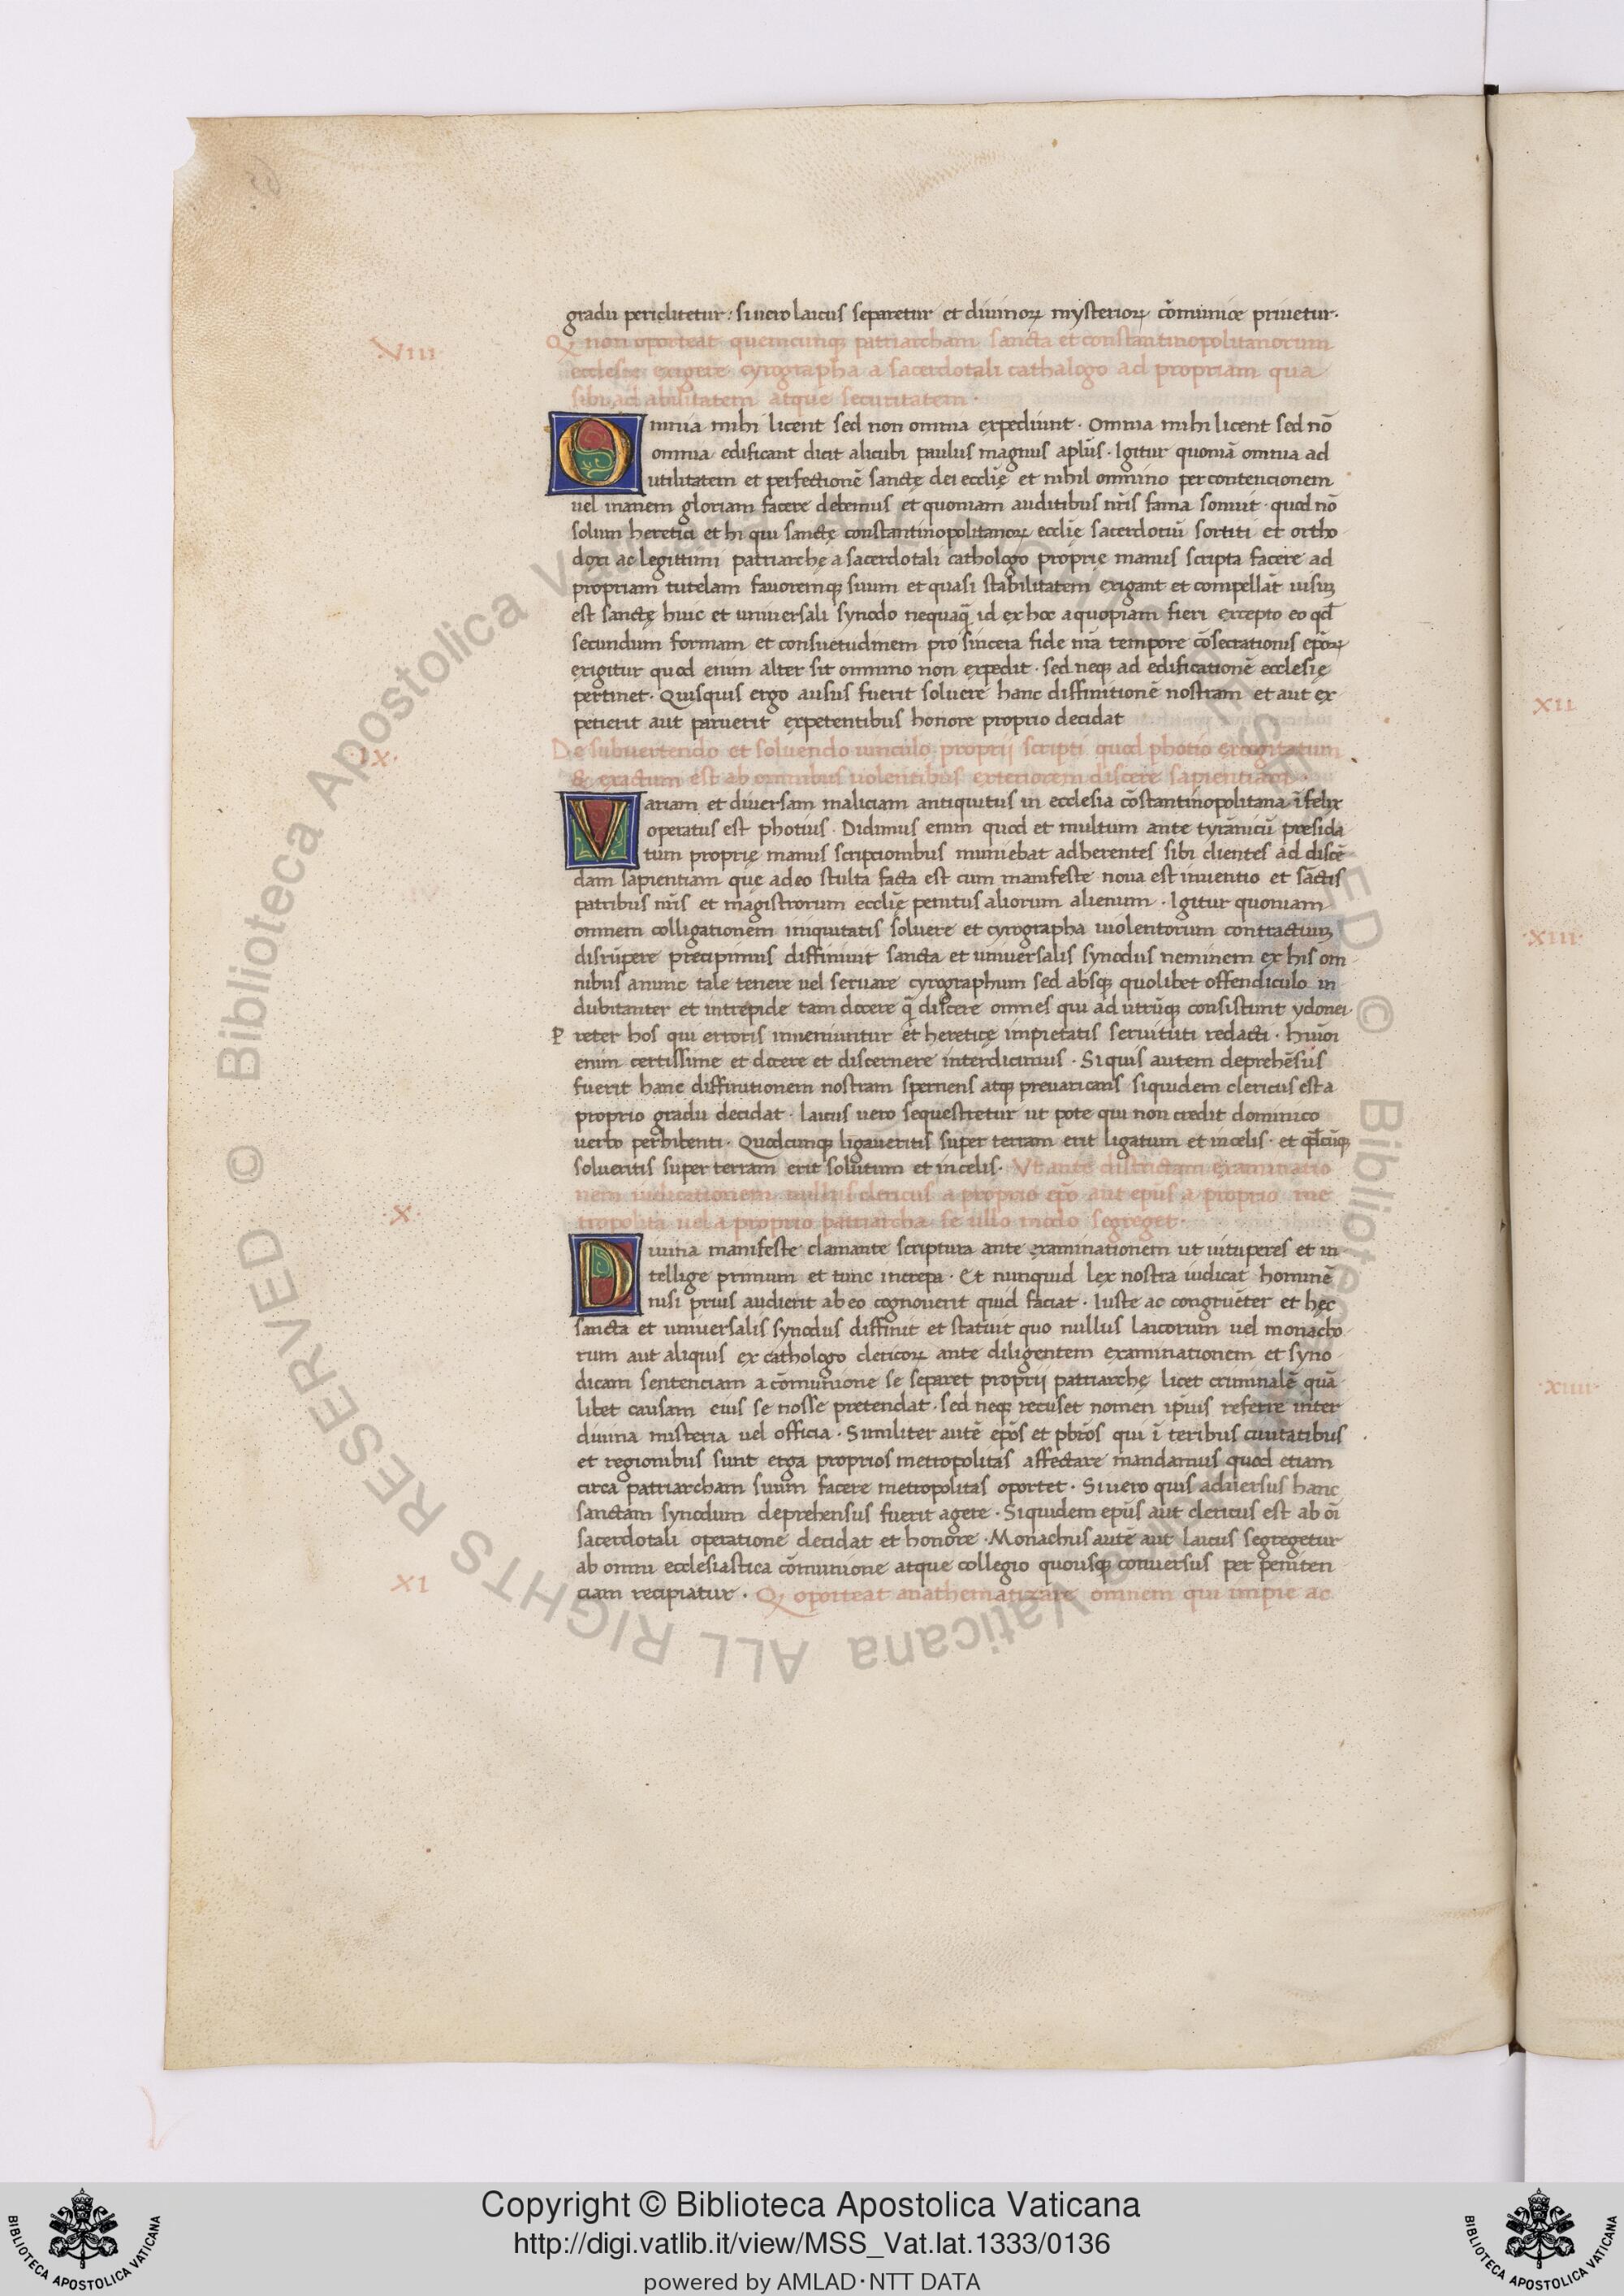 gradu periclitetur: si uero laicus separetur et diuinoꝝ mysterioꝝ cōmunione priuetur.
VIII
Qꝫ non oporteat quemcunqꝫ patriarcham sancta et constantinopolitanorum
ecclesie exigere cyrographa a sacerdotali cathalogo ad propriam qua
si biad abilitatem atque securitatem.
Omnia mihi licent sed non omnia expediunt. Omnia mihi licent sed nō
omnia edificant dicit alicubi paulus magnus apl̄us. Igitur quoniā omnia ad
utilitatem et perfectionē sanctę dei eccl̄ię et nihil omnino per contencionem
uel inanem gloriam facere debemus et quoniam auditibus nr̄is fama sonuit. quod nō
solum heretici et hi qui sanctę constantinopolitanoꝝ eccl̄ie sacerdotiū sortiti et ortho
doxi ac legittimi patriarchę a sacerdotali cathologo proprie manus scripta facere ad
propriam tutelam fauoremqꝫ suum et quasi stabilitatem exigant et compellāt uisuꝫ
est sanctę huic et uniuersali synodo nequaq̄ id ex hoc a quopiam fieri excepto eo qd̄
secundum formam et consuetudinem pro sincera fide nr̄a tempore cōsecrationis ep̄oꝝ
exigitur quod enim alter sit omnino non expedit. sed neqꝫ ad edificationē ecclesię
pertinet. Quisquis ergo ausus fuerit soluere hanc diffinitionē nostram et aut ex
petierit aut paruerit expetentibus honore proprio decidat
IX.
De subuertendo et soluendo uinculo proprii scripti quod photio excogitatum
& exactum est ab omnibus uolentibus exteriorem discere sapientiam.
Variam et diuersam maliciam antiquitus in ecclesia cōstantinopolitana īfelix
operatus est photius. Didimus enim quod et multum ante tyrānicū presida
tum proprię manus scriptionibus muniebat adherentes sibi clientes ad discē
dam sapientiam que adeo stulta facta est cum manifeste noua est inuentio et sāctis
patribus nr̄is et magistrorum eccl̄ię penitus aliorum alienum. Igitur quoniam
omnem colligationem iniquitatis soluere et cyrographa uiolentorum contractiuꝫ
disrūpere precipimus diffiniuit sancta et uniuersalis synodus neminem ex his om
nibus a nunc tale tenere uel seruare cyrographum sed absqꝫ quolibet offendiculo in
dubitanter et intrepide tam docere q̄ discere omnes qui ad utrūqꝫ consistunt ydonei
Preter hos qui erroris inueniuntur et hereticę impietatis seruituti redacti. huiōi
enim certissime et docere et discernere interdicimus. Siquis autem deprehēsus
fuerit hanc diffinitionem nostram spernens atqꝫ preuaricans siquidem clericus est a
proprio gradu decidat. laicus uero sequestretur ut pote qui non credit dominico
uerbo perhibenti. Quodcunqꝫ ligaueritis super terram erit ligatum et in celis. et qd̄cūqꝫ
solueritis super terram erit solutum et in celis. Vt ante districtam examinatio
nem iudicationem nullus clericus a proprio ep̄o aut ep̄us a proprio me
X.
tropolita uel a proprio patriarcha se ullo modo segreget.
Diuina manifeste clamante scriptura ante examinationem ut uituperes et in
tellige primum et tunc increpa. Et nunquid lex nostra iudicat hominē
nisi prius audierit ab eo cognouerit quid faciat. Iuste ac congruēter et hęc
sancta et uniuersalis synodus diffinit et statuit quo nullus laicorum uel monacho
rum aut aliquis ex cathologo clericoꝝ ante diligentem examinationem et syno
dicam sentenciam a cōmunione se separet proprii patriarchę licet criminalē quā
libet causam eius se nosse pretendat. sed neqꝫ recuset nomen ip̄ius referre inter
diuina misteria uel officia. Similiter autē ep̄os et pbr̄os qui ī teribus ciuitatibus
et regionibus sunt erga proprios metropolitas affectare mandamus quod etiam
circa patriarcham suum facere metropolitas oportet. Si uero quis aduersus hanc
sanctam synodum deprehensus fuerit agere. Siquidem ep̄us aut clericus est ab oī
sacerdotali operatione decidat et honore. Monachus autē aut laicus segregetur
ab omni ecclesiastica cōmunione atque collegio quousqꝫ conuersus per peniten
XI
ciam recipiatur. Qꝫ oporteat anathematizare omnem qui impie ac
XII
XIII.
XIIII
© Biblioteca Apostolica Vaticana ALL RIGHTS RESERVED © Biblioteca Apostolica Vaticana ALL RIGHTS RESERVED
Copyright © Biblioteca Apostolica Vaticana
http://digi.vatlib.it/view/MSS_Vat.lat.1333/0136
powered by AMLAD･NTT DATA
BIBLIOTECA APOSTOLICA VATICANA
BIBLIOTECA APOSTOLICA VATICANA